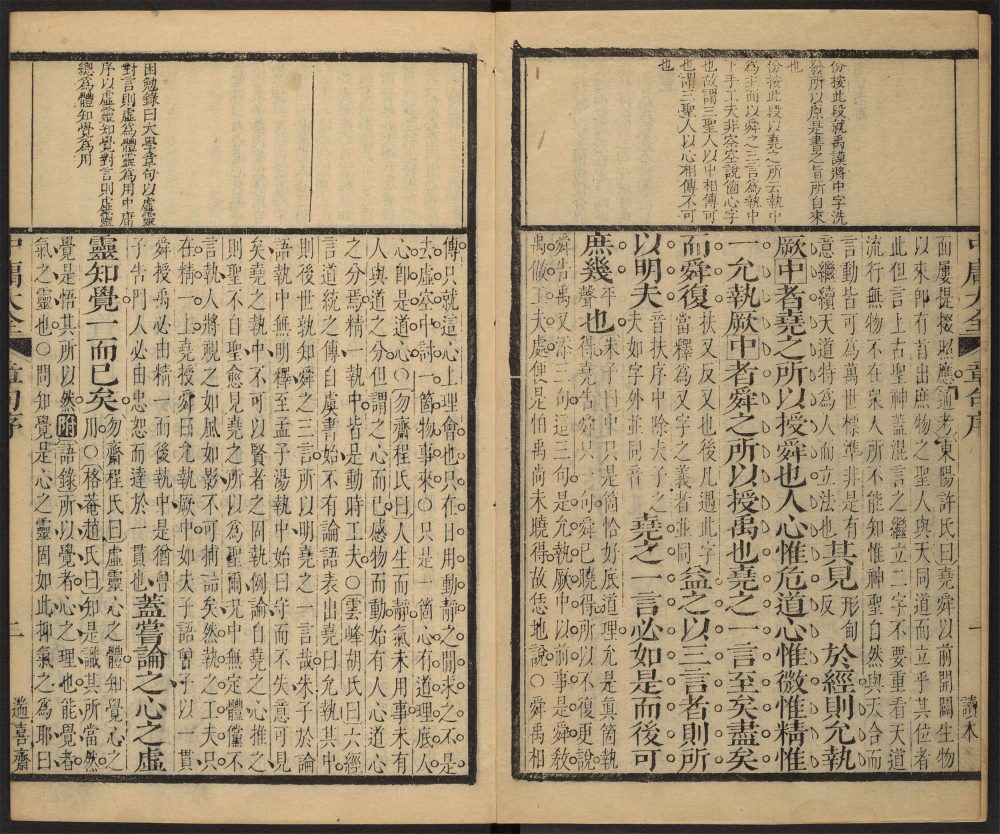 份按此段就禹謨將中字洗
發所以原是書之旨所自來
也
份按此段以堯之所云執中
為主而以舜之三言為執中
下手工夫非空空說箇心字
也故謂三聖人以中相傳可
也謂三聖人以心相傳不可
也
中庸大全 章句序 一 讀本
面屢提掇照應通考東陽許氏曰堯舜以前開闢生物
以來卽有首出庶物之聖人與天同道而立乎其位者
此但言上古聖神蓋混言之繼立二字不要重看天道
流行無物不在衆人所不能知惟神聖自然與天合而
言動皆可爲萬世標準非是有
意繼續天道特爲人而立法也
其見形甸反於經則允執
厥中者堯之所以授舜也人心惟危道心惟微惟精惟
一允執厥中者舜之所以授禹也堯之一言至矣盡矣
而舜復扶又反又也後凡遇此字當釋爲又字之義者並同益之以三言者則所
以明夫音扶序中除夫子之夫如字外並同音堯之一言必如是而後可
庶幾平聲也朱子曰中只是箇恰好底道理允是眞箇執
得堯告舜只一句舜已曉得所以不復更說
舜告禹又添三句這三句是允執厥中以前事是舜敎
禹做工夫處便是怕禹尚未曉得故恁地說○舜禹相
困勉錄曰大學章句以虛靈
對言則虛爲體靈爲用中庸
序以虛靈知覺對言則虛靈
總爲體知覺爲用
傳只就這心上理會也只在日用動靜之間求之不是
去虛空中討一箇物事來○只是一箇心有道理底人
心卽是道心○勿齋程氏曰人生而靜氣未用事未有
人與道之分但謂之心而已感物而動始有人心道心
之分焉精一執中皆是動時工夫○雲峰胡氏曰六經
言道統之傳自虞書始不有論語表出堯曰允執其中
則後世孰知舜之三言所以明堯之一言哉朱子於論
語執中無明釋至孟子湯執中始曰守而不失意可見
矣堯之執中不可以賢者之固執例論自堯之心推之
則聖不自聖愈見堯之所以爲聖爾况中無定體儻不
言執人將視之如風如影不可捕詰矣然執之工夫只
在精一上堯授舜曰允執厥中如夫子語曾子以一貫
舜授禹必由精一而後執中是猶曾
子告門人必由忠恕而達於一貫也
蓋嘗論之心之虛
靈知覺一而已矣勿齋程氏曰虛靈心之體知覺心之
用○格菴趙氏曰知是識其所當然
覺是悟其所以然附語錄所以覺者心之理也能覺者
氣之靈也○問知覺是心之靈固如此抑氣之爲耶曰
中庸大全 章句序 二 遄喜齋